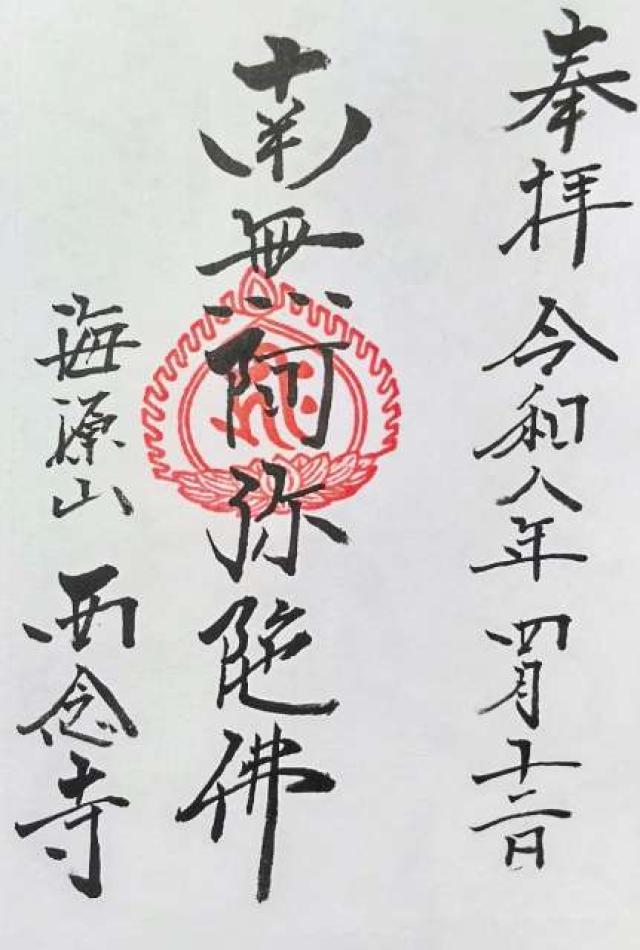 奉拝 令和八年四月十二日
南無阿弥陀佛
海源山 西念寺